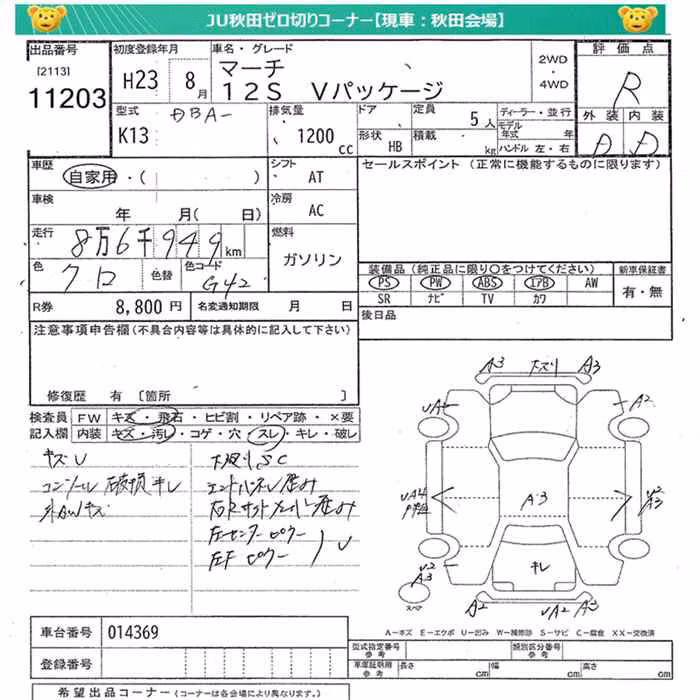 JU秋田ゼロ切りコーナー【現車：秋田会場】
出品番号 初度登録年月 車名・グレード 評価点
[2113] マーチ 2WD
11203 H23 8月 12S Vパッケージ ・4WD R
型式 DBA- 排気量 ドア 定員 5人 ディーラー・並行 外装 内装
K13 1200cc 形状 HB 積載 kg モデル年式 年 D D
ハンドル 左・右
車歴 自家用・( ) シフト AT セールスポイント (正常に機能するものに限ります)
車検 年 月( 日) 冷房 AC
走行 8万6千949km 燃料 ガソリン
色 クロ 色替 色コード G42 装備品 (純正品に限り○をつけてください) 新車保証書
PS PW ABS エアB AW 有・無
SR ナビ TV カワ
R券 8,800円 名変通知期限 月 日 後日品
注意事項申告欄(不具合内容等は具体的に記入して下さい)
修復歴 有 [箇所 ]
検査員 FW キズ・飛石・ヒビ割・リペア跡・×要
記入欄 内装 キズ・汚れ・コゲ・穴・スレ・キレ・破レ
キズU 下廻りSC
コンソール破損キレ エンドパネル歪み
外AWキズ
左センターピラー
左Fピラー U
A3 下スリ A3
UA2 A2
UA4 A3 U2
A3
U2 キレ
A3
スペア A2 UA2 A3
A－キズ E－エクボ U－凹み W－補修跡 S－サビ C－腐食 XX－交換済
車台番号 014369 型式指定番号 参考 類別区分番号 参考
登録番号 車庫証明用 参考 長さ cm 幅 cm 高さ cm
希望出品コーナー (コーナーは各会場により異なります。)